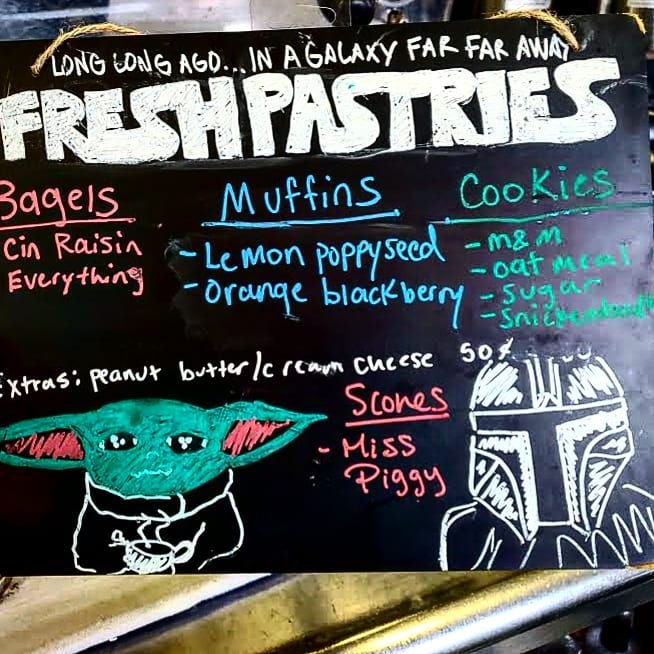 LONG LONG AGO... IN A GALAXY FAR FAR AWAY
FRESH PASTRIES
Bagels
Cin Raisin
Everything
Muffins
- Lemon poppyseed
- Orange blackberry
Cookies
- m&m
- oatmeal
- sugar
- snickerdoodle
Extras: peanut butter/cream cheese 50¢
Scones
- Miss
Piggy